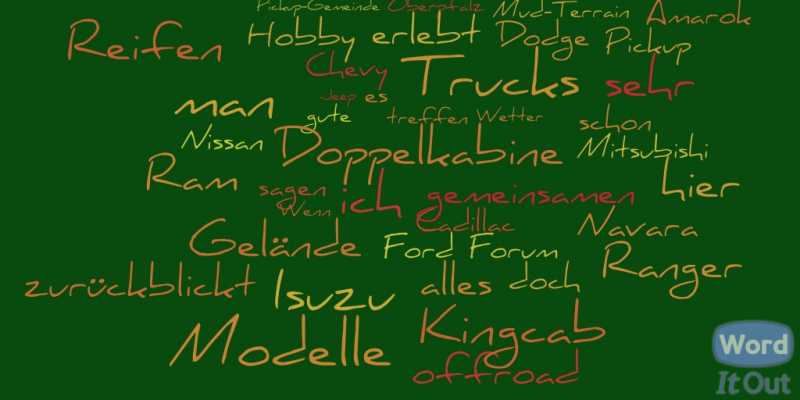 Pickup-Gemeinde Oberpfalz Mud-Terrain Amarok
Reifen Hobby erlebt Dodge Pickup
Chevy Trucks sehr
man Jeep es
gute treffen Wetter schon
Nissan Doppelkabine Mitsubishi
Ram sagen ich gemeinsamen hier
Wenn Cadillac Navara
Gelände Ford Forum Ranger
zurückblickt Isuzu alles doch
Modelle Kingcab
offroad
Word
It Out